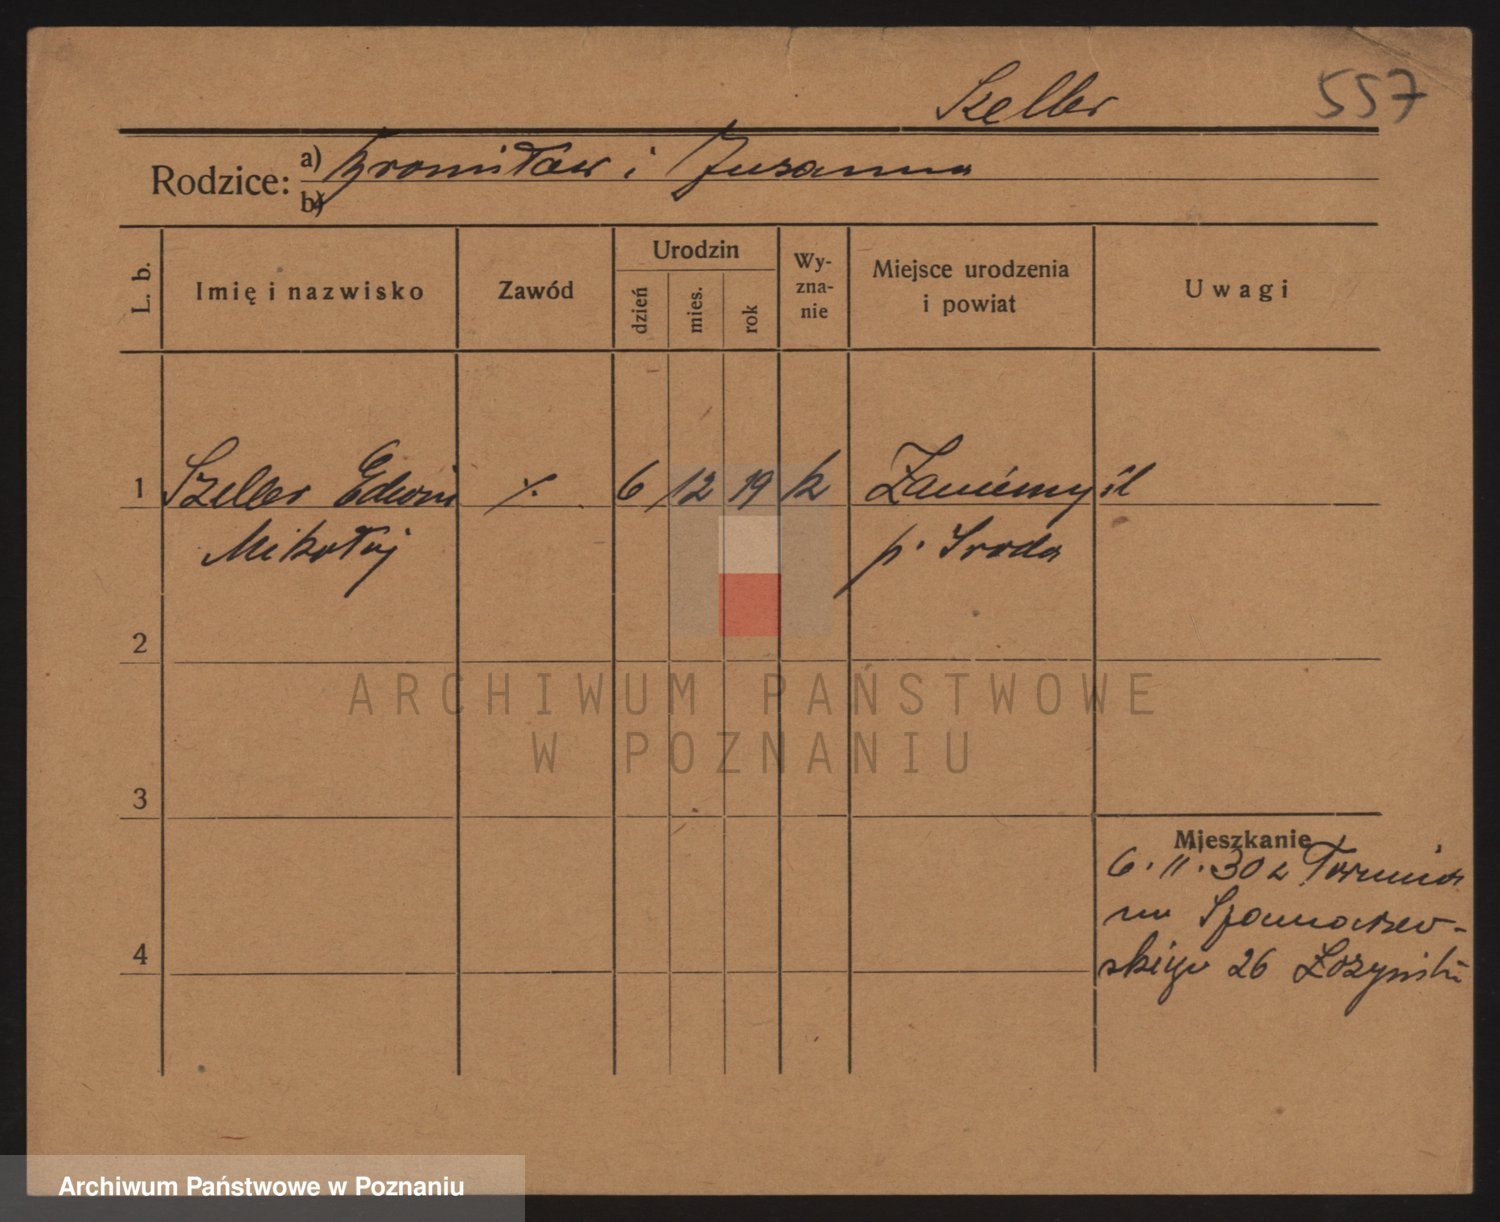 Szeller 557
Rodzice: a) Bronisław i Zuzanna
b)
L. b. Imię i nazwisko Zawód Urodzin dzień mies. rok Wy-zna-nie Miejsce urodzenia i powiat Uwagi
1 Szeller Edwin ·/. 6 12 19 k Zaniemyśl
Mikołaj p. Sroda
2
ARCHIWUM PAŃSTWOWE
W POZNANIU
3
Mieszkanie
6.11.30 z Torunia
na Szamarzew-
skiego 26
4
Archiwum Państwowe w Poznaniu